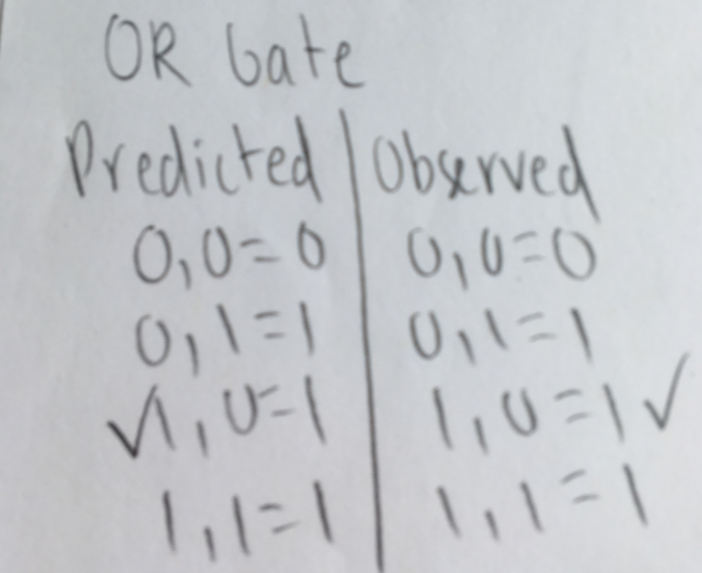 OR Gate
Predicted | Observed
0,0=0 | 0,0=0
0,1=1 | 0,1=1
✓1,0=1 | 1,0=1 ✓
1,1=1 | 1,1=1